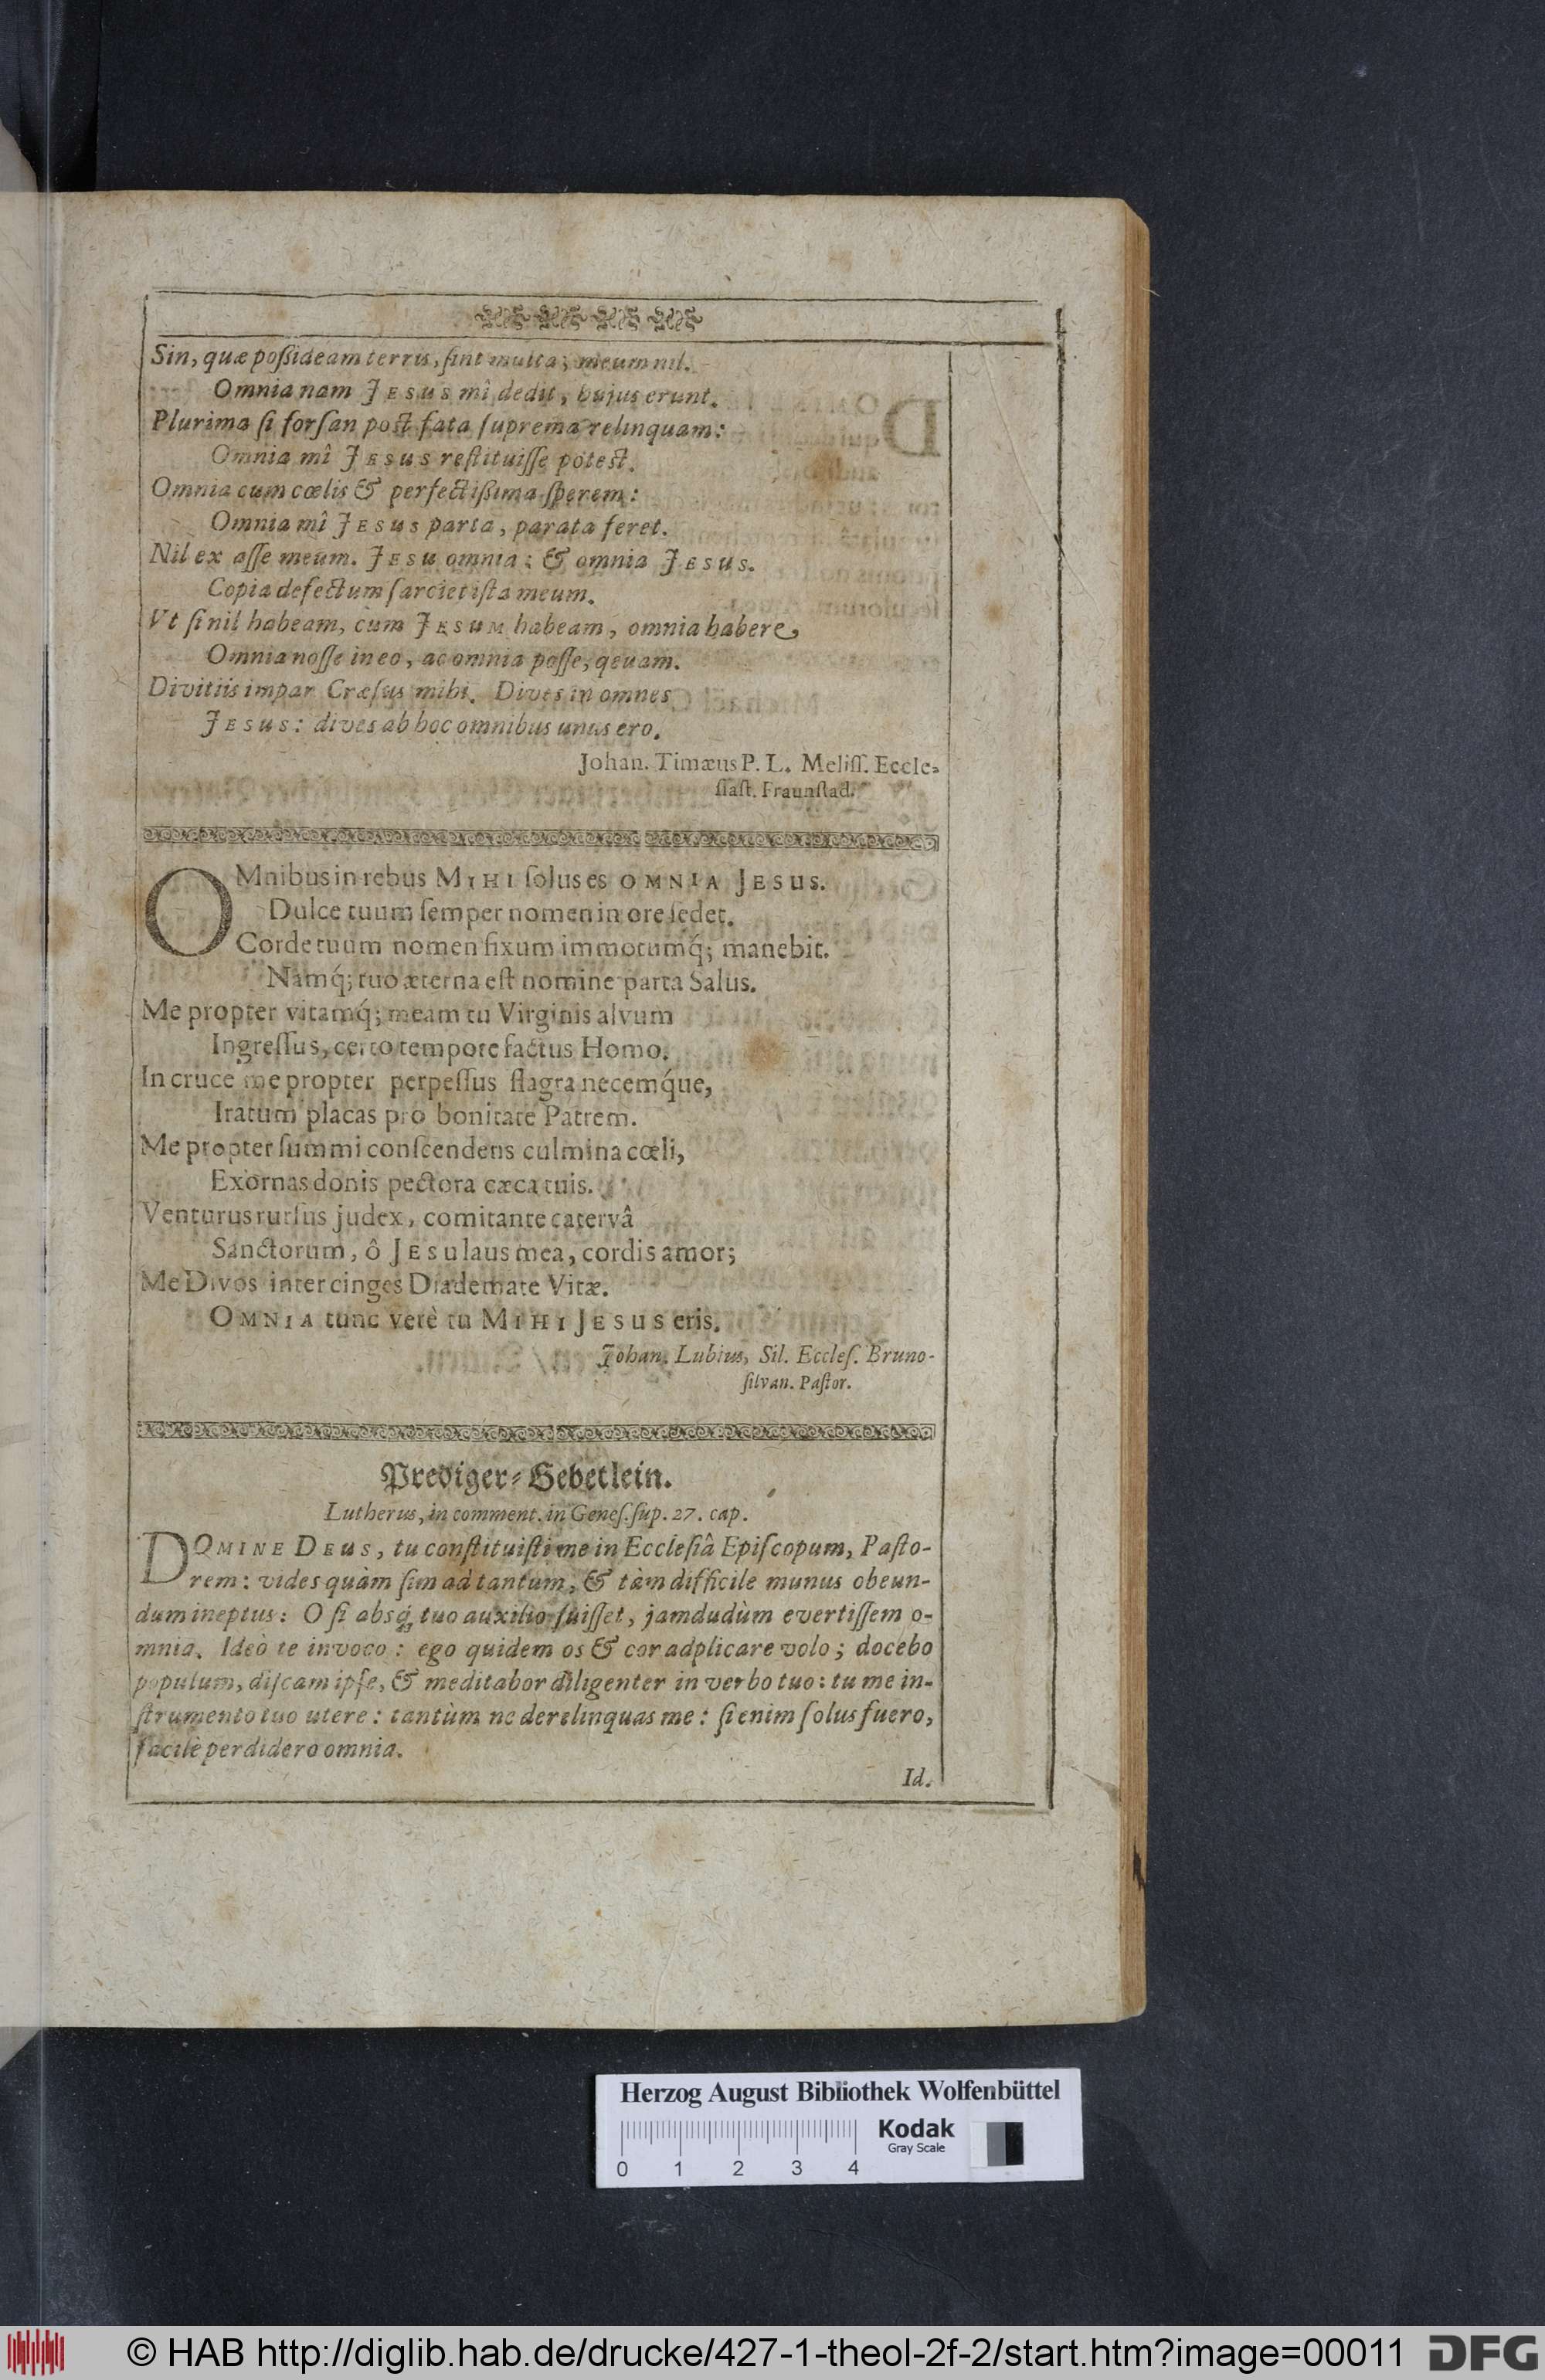 Sin, quæ poßideam terris, ſint multa; meum nil.
Omnia nam JESUS mî dedit, hujus erunt.
Plurima ſi forſan post fata ſuprema relinquam:
Omnia mî JESUS reſtituiſſe potest.
Omnia cum cœlis & perfectißima ſperem:
Omnia mî JESUS parta, parata feret.
Nil ex aſſe meum. JESU omnia: & omnia JESUS.
Copia defectum ſarciet iſta meum.
Vt ſi nil habeam, cum JESUM habeam, omnia habere,
Omnia noſſe in eo, ac omnia poſſe, qeuam.
Divitiis impar Cræſus mihi. Dives in omnes
JESUS: dives ab hoc omnibus unus ero.
Johan. Timæus P. L. Meliſſ. Eccle-
ſiaſt. Fraunſtad.
OMnibus in rebus MIHI ſolus es OMNIA JESUS.
Dulce tuum ſemper nomen in ore ſedet.
Corde tuum nomen fixum immotumq́; manebit.
Namq́; tuo æterna eſt nomine parta Salus.
Me propter vitamq́; meam tu Virginis alvum
Ingreſſus, certo tempore factus Homo.
In cruce me propter perpeſſus flagra necemq́ue,
Iratum placas pro bonitate Patrem.
Me propter ſummi conſcendens culmina cœli,
Exornas donis pectora cæca tuis.
Venturus rurſus judex, comitante catervâ
Sanctorum, ô JESU laus mea, cordis amor;
Me Divos inter cinges Diademate Vitæ.
OMNIA tunc verè tu MIHI JESUS eris.
Johan. Lubius, Sil. Eccleſ. Bruno-
ſilvan. Paſtor.
Prediger-Gebetlein.
Lutherus, in comment. in Geneſ. ſup. 27. cap.
DOMINE DEUS, tu conſtituiſti me in Eccleſiâ Epiſcopum, Paſto-
rem: vides quàm ſim ad tantum, & tàm difficile munus obeun-
dum ineptus: O ſi absq́; tuo auxilio fuiſſet, jamdudùm evertiſſem o-
mnia. Ideò te invoco: ego quidem os & cor adplicare volo; docebo
populum, diſcam ipſe, & meditabor diligenter in verbo tuo: tu me in-
ſtrumento tuo utere: tantùm ne derelinquas me: ſi enim ſolus fuero,
facilè perdidero omnia.
Id.
Herzog August Bibliothek Wolfenbüttel
Kodak
Gray Scale
0 1 2 3 4
© HAB http://diglib.hab.de/drucke/427-1-theol-2f-2/start.htm?image=00011
DFG